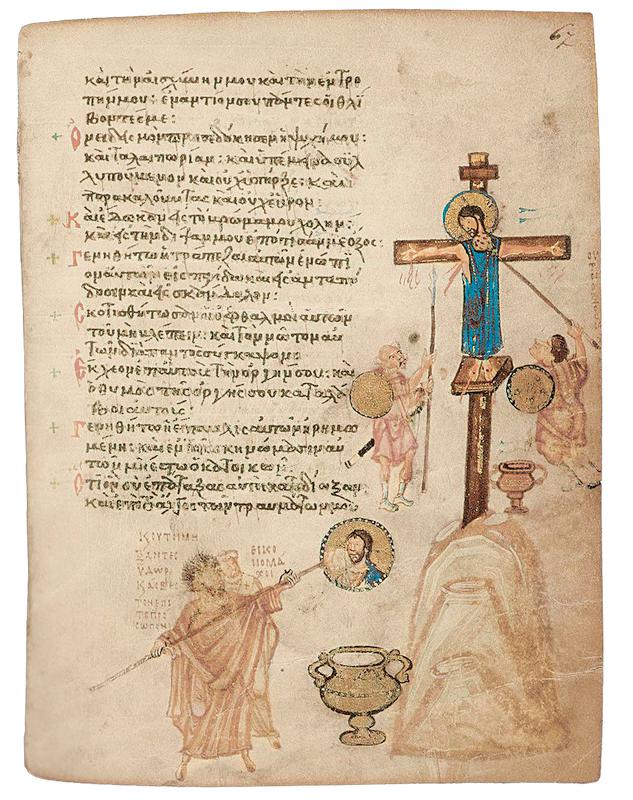 καὶ τὴν αἰσχύνην μου καὶ τὴν ἐντρο
πήν μου: ἐναντίον σου πάντες οἱ θλί
βοντές με:
Ὀνειδισμὸν προσεδόκησεν ἡ ψυχή μου:
καὶ ταλαιπωρίαν: καὶ ὑπέμεινα συλ
λυπούμενον καὶ οὐχ ὑπῆρξε: καὶ
παρακαλοῦντας καὶ οὐχ εὗρον:
Καὶ ἔδωκαν εἰς τὸ βρῶμα μου χολήν:
καὶ εἰς τὴν δίψαν μου ἐπότισάν με ὄξος:
Γενηθήτω ἡ τράπεζα αὐτῶν ἐνώπι
ον αὐτῶν εἰς παγίδα καὶ εἰς ἀνταπό
δοσιν καὶ εἰς σκάνδαλον:
Σκοτισθήτωσαν οἱ ὀφθαλμοὶ αὐτῶν
τοῦ μὴ βλέπειν: καὶ τὸν νῶτον αὐ
τῶν διὰ παντὸς σύγκαμψον
Ἔκχεον ἐπ' αὐτοὺς τὴν ὀργήν σου: καὶ
ὁ θυμὸς τῆς ὀργῆς σου καταλά
βοι αὐτούς:
Γενηθήτω ἡ ἔπαυλις αὐτῶν ἠρημω
μένη: καὶ ἐν τοῖς σκηνώμασιν αὐ
τῶν μὴ ἔστω ὁ κατοικῶν:
Ὅτι ὃν σὺ ἐπάταξας αὐτοὶ κατεδίωξαν
καὶ ἐπὶ τὸ ἄλγος τῶν τραυμάτων μου
67
Κ ΟΥΤΟΙ ΜΗ
ΞΑΝΤΕС
ΥΔΩΡ
ΚΑСΒΕС
ΤΟΝ ΕΠΙ
ΤΟ ΠΡΟ
СΩΠΟΝ
ΕΙΚΟ
ΝΟΜΑ
ΧΟΙ